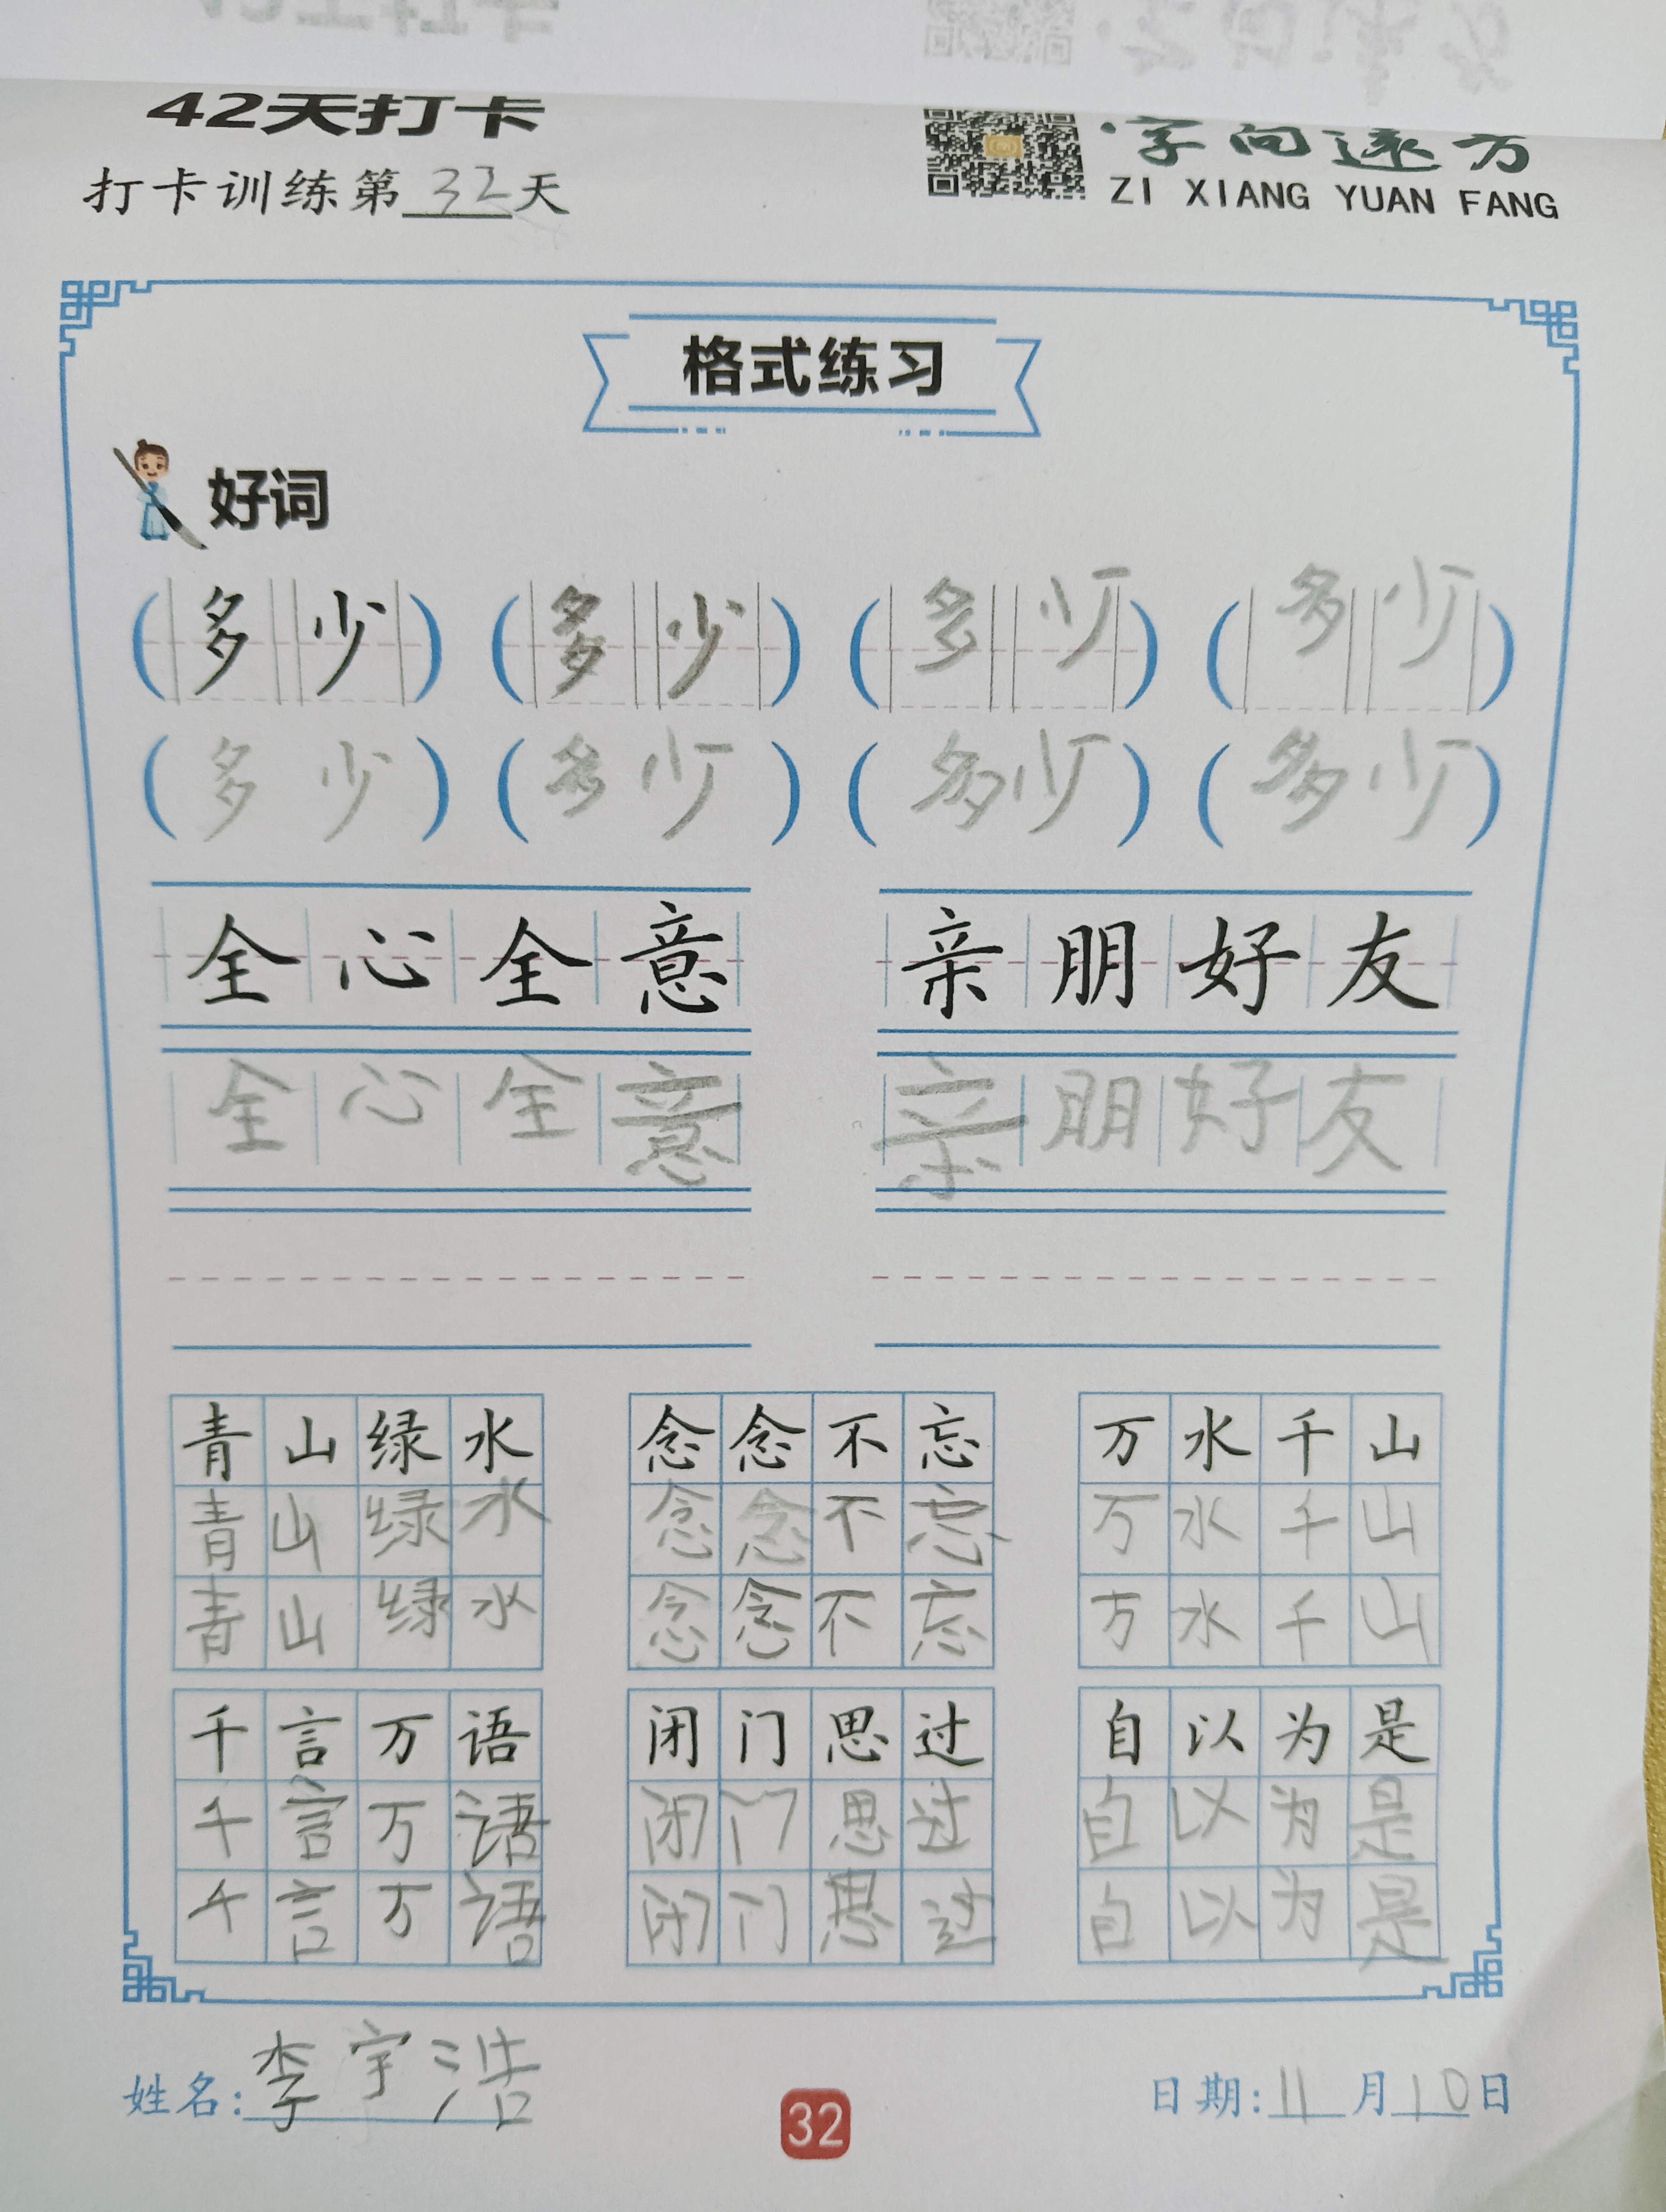 42天打卡
字向远方
打卡训练第32天
ZI XIANG YUAN FANG
格式练习
好词
(多少) (多少) (多少) (多少)
(多少) (多少) (多少) (多少)
全心全意 亲朋好友
全心全意 亲朋好友
青山绿水 念念不忘 万水千山
青山绿水 念念不忘 万水千山
青山绿水 念念不忘 万水千山
千言万语 闭门思过 自以为是
千言万语 闭门思过 自以为是
千言万语 闭门思过 自以为是
姓名:李宇浩
32
日期:11月10日